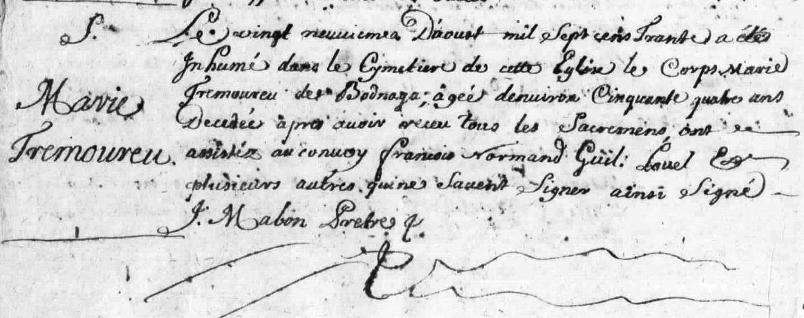 S.
Marie
Tremoureu
Le vingt neuvieme Daoust mil Sept cens Trante a été
Inhumé dans le Cymetiere de cette Eglise le Corps Marie
Tremoureu de Bodnaga, agée denviron Cinquante quatre ans
Decedée apres avoir receu tous les Sacremens, ont
assistéz au convoy francois Normand Guil: Louel Et
plusieurs autres qui ne Savent Signer ainsi Signé
J. Mabon Pretre